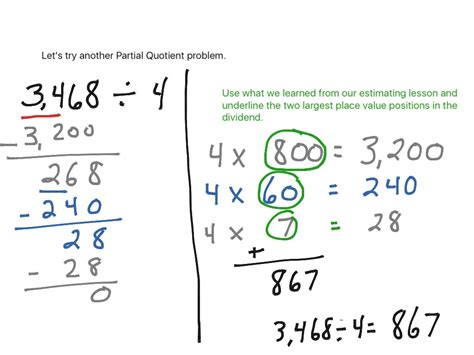 Let's try another Partial Quotient problem.
3,468 ÷ 4
- 3,200
268
- 240
28
- 28
0
Use what we learned from our estimating lesson and
underline the two largest place value positions in the
dividend.
4 × 800 = 3,200
4 × 60 = 240
4 × 7 = 28
+
867
3,468÷4= 867